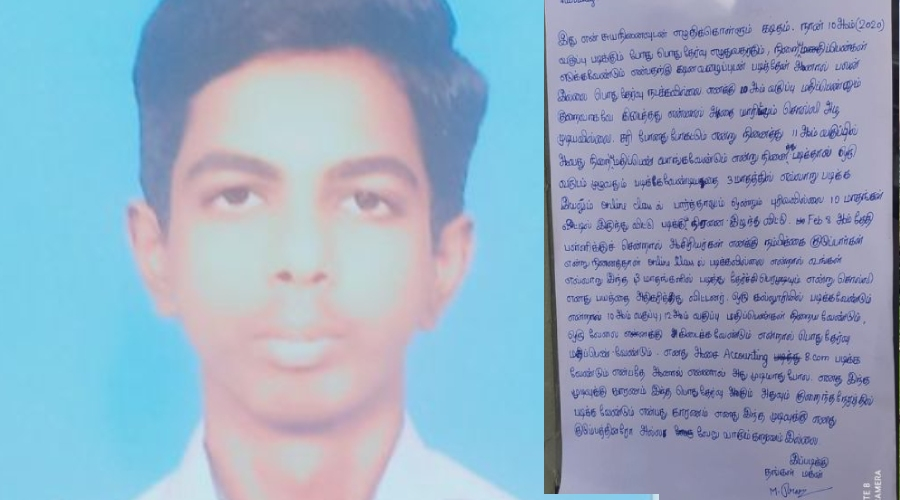 இது என் சுயநினைவுடன் எழுதிக்கொள்ளும் கடிதம். நான் 10 ஆம் (2020)
வகுப்பு படிக்கும் போது பொதுதேர்வு எழுதுவதற்கும், நிறைய மதிப்பெண்கள்
எடுக்கவேண்டும் என்பதற்கு கடினஉழைப்புடன் படித்தேன் ஆனால் பலன்
இல்லை பொது தேர்வு நடக்கவில்லை எனக்கு 10 ஆம் வகுப்பு மதிப்பெண்ணும்
குறைவாகவே கிடைத்தது என்னால் அதை யாரிடமும் சொல்லி அழ
முடியவில்லை. சரி போனது போகட்டும் என்று நினைத்து 11 ஆம் வகுப்பில்
அவது நிறைய மதிப்பெண் வாங்கவேண்டும் என்று நினைத்து படித்தால் ஒரு
வருடம் முழுவதும் படிக்கவேண்டியதை 3 மாதத்தில் எவ்வாறு படிக்க
இயலும் online class ல் பார்த்தாலும் ஒன்றும் புரியவில்லை 10 மாதங்கள்
வீட்டில் இருந்து விட்டு படிக்கும் திறனை இழந்து விட்டு. Feb 8 ஆம் தேதி
பள்ளிக்குச் சென்றால் ஆசிரியர்கள் எனக்கு நம்பிக்கை கொடுப்பார்கள்
என்று நினைத்தால் online class ல் படிக்கவில்லை என்றால் உங்கள்
எவ்வாறு இந்த 3 மாதங்களில் படித்து தேர்ச்சி பெறமுடியும் என்று சொல்லி
எனது பயத்தை அதிகரித்து விட்டனர். ஒரு கல்லூரியில் படிக்கவேண்டும்
என்றால் 10 ஆம் வகுப்பு, 12 ஆம் வகுப்பு மதிப்பெண்கள் நிறைய வேண்டும்.
ஒரு வேலை எனக்கு கிடைக்க வேண்டும் என்றால் பொது தேர்வு
மதிப்பெண் வேண்டும். எனது ஆசை Accounting B.com படிக்க
வேண்டும் என்பதே ஆனால் என்னால் அது முடியாது போல. எனது இந்த
முடிவுக்கு காரணம் இந்த பொதுதேர்வு அதுவும் குறைந்த நேரத்தில்
படிக்க வேண்டும் என்பது காரணம் எனது இந்த முடிவுக்கு எனது
குடும்பத்தினரோ அல்லது வேறு யாரும் காரணம் இல்லை
இப்படிக்கு
தங்கள் மகன்